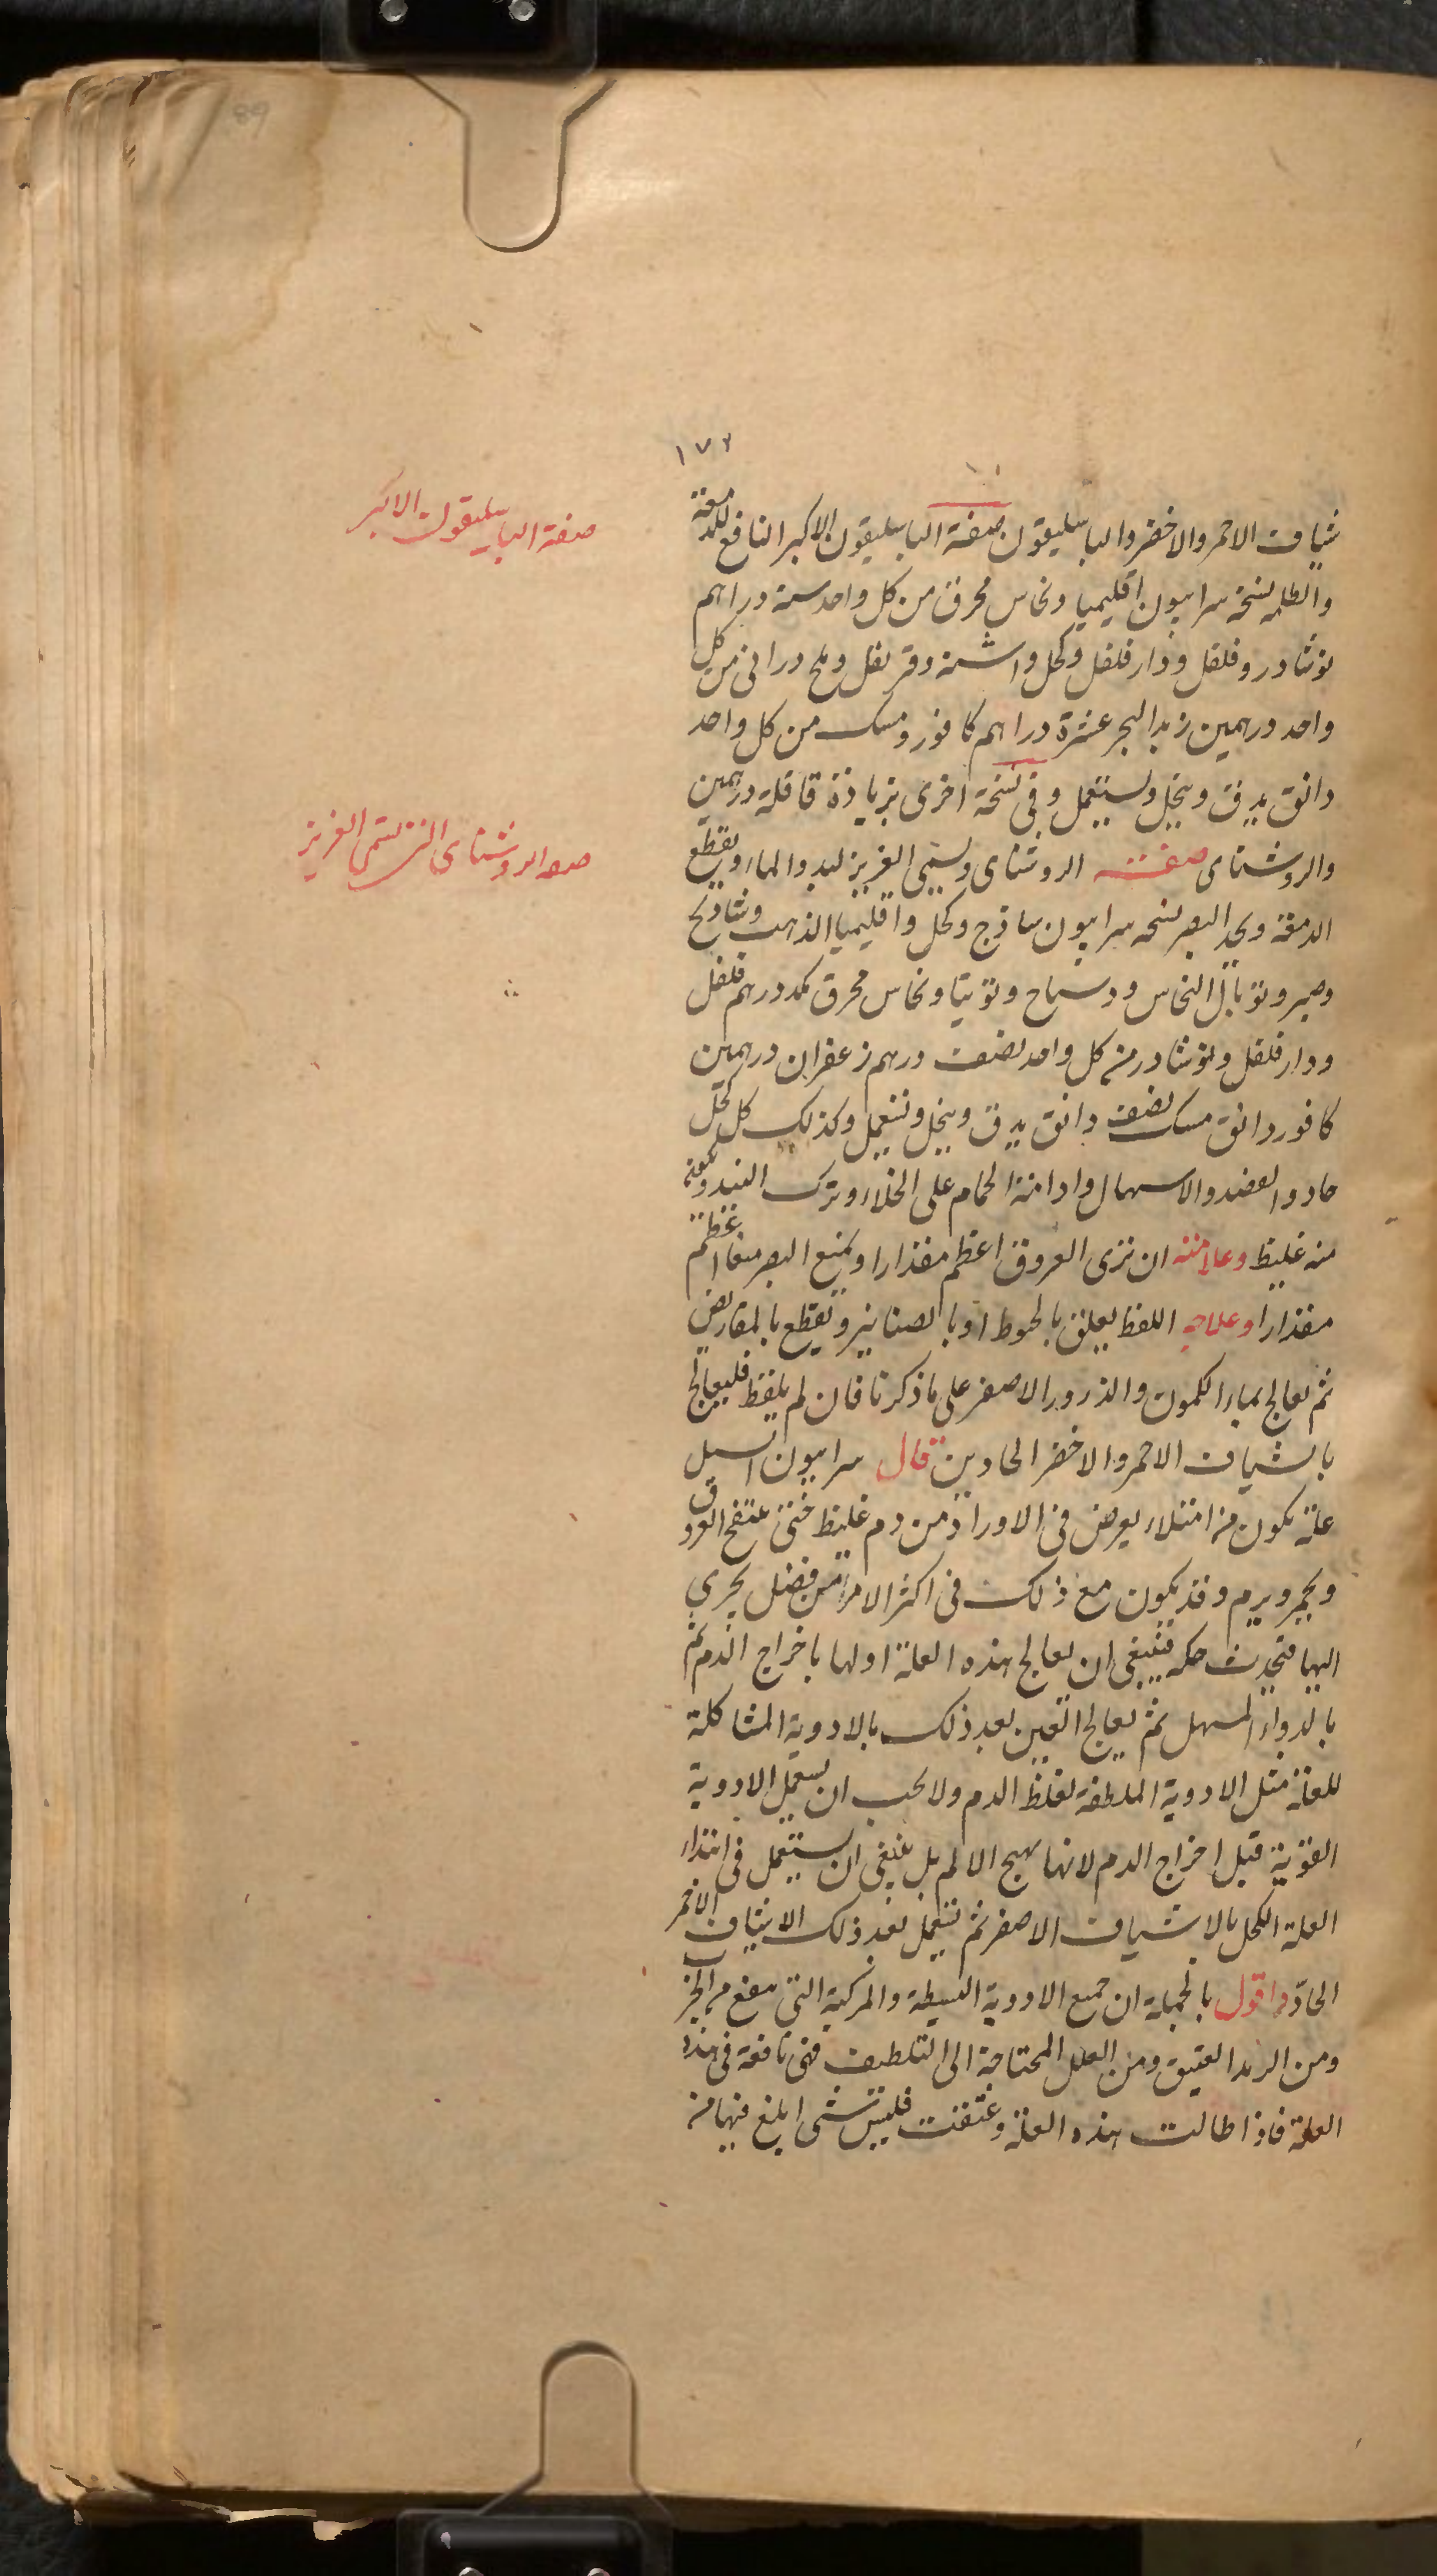 89
١٧٢
شياف الاحمر والاخضر والباسليقون صفة الباسليقون الاكبر النافع للدمعة
والظلمة نسخة سرابيون اقليميا ونحاس محرق من كل واحد ستة دراهم
نوشادر وفلفل ودارفلفل وكحل واشنة وقرنفل وملح درانى من كل
واحد درهمين زبد البحر عشرة دراهم كافور ومسك من كل واحد
دانق يدق وينخل ويستعمل وفى نسخة اخرى بزيادة قاقلة درهمين
والروشناى صفته الروشناى ويسمى العزيز لبدو الماء ويقطع
الدمعة ويحد البصر نسخه سرابيون ساذج وكحل واقليميا الذهب وشادنج
وصبر وتوبال النحاس وتوتيا ونحاس محرق درهم فلفل
ودارفلفل ونوشادر من كل واحد نصف درهم زعفران درهمين
كافور دانق مسك نصف دانق يدق وينخل ويستعمل وكذلك كل كحل
حاد والفصد والاسهال وادامة الحمام على الخلاء وترك النبيذ
منه غليظ وعلامته ان ترى العروق اعظم مقدارا ويمنع البصر
مقدارا وعلاجه اللقط يعلق بالخيوط او بالصنانير ويقطع بالمقاريض
ثم يعالج بماء الكمون والذرور الاصفر على ما ذكرنا فان لم يلقط فليعالج
بالشياف الاحمر والاخضر الحادين قال سرابيون السبل
علة يكون من امتلاء يعرض فى الاوراد من دم غليظ حتى تنتفخ العروق
ويحمر ويرم وقد يكون مع ذلك فى اكثر الامر من فضل يجرى
اليها فتحدث حكه فينبغى ان يعالج هذه العلة اولها باخراج الدم ثم
بالدواء المسهل ثم يعالج العين بعد ذلك بالادوية المشاكلة
للعلة مثل الادوية الملطفة لغلظ الدم ولا يجب ان يستعمل الادوية
القوية قبل اخراج الدم لانها تهيج الالم بل ينبغى ان يستعمل فى ابتداء
العلة الكحل بالاشياف الاصفر ثم يستعمل بعد ذلك الاشياف الاحمر
الحاد واقول بالجملة ان جميع الادوية البسيطة والمركبة التى تنفع من الجرب
ومن الرمد العتيق ومن العلل المحتاجة الى التلطيف فهى نافعة فى هذه
العلة فاذا طالت هذه العلة وعتقت فليس شى ابلغ فيها من
صفة الباسليقون الاكبر
صفه الروشناى الذى يسمى العزيز